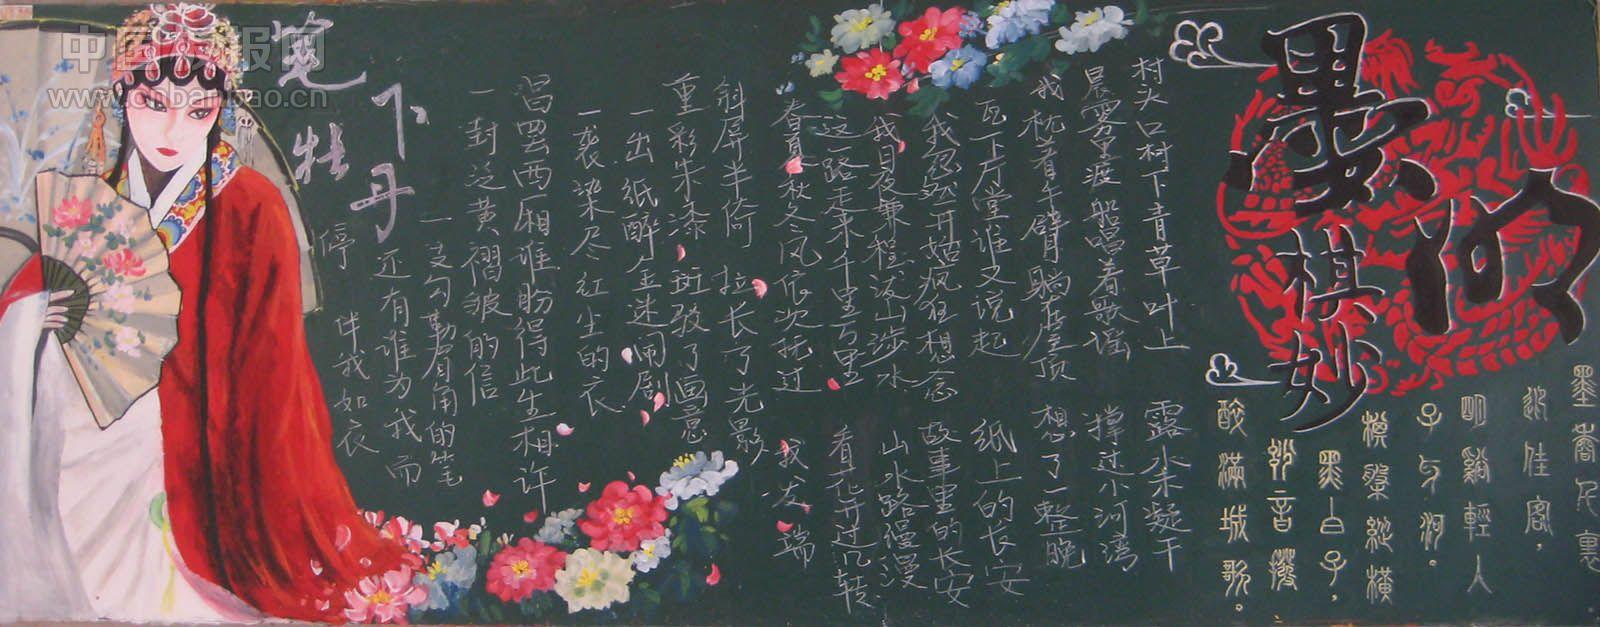 中国板报网
www.cnbanbao.cn
墨明
棋妙
迎佳客，
黑白子，
村头口村下青草叶上 露水未凝干
晨雾里渡船唱着歌谣 撑过小河湾
我枕着手臂躺在屋顶 想了一整晚
瓦下厅堂谁又说起 纸上的长安
我忽然开始疯狂想念 故事里的长安
我日夜兼程跋山涉水 山水路漫漫
这一路走来千里万里 看花开过几转
春夏秋冬风依次抚过 我发端
下
牡丹
斜屏半倚 拉长了光影
重彩朱漆 斑驳了画意
一出纸醉金迷闹剧
一袭染尽红尘的衣
唱罢西厢谁盼得此生相许
一封泛黄褶皱的信
一支勾勒眉角的笔
还有谁为我而
停 伴我如衣